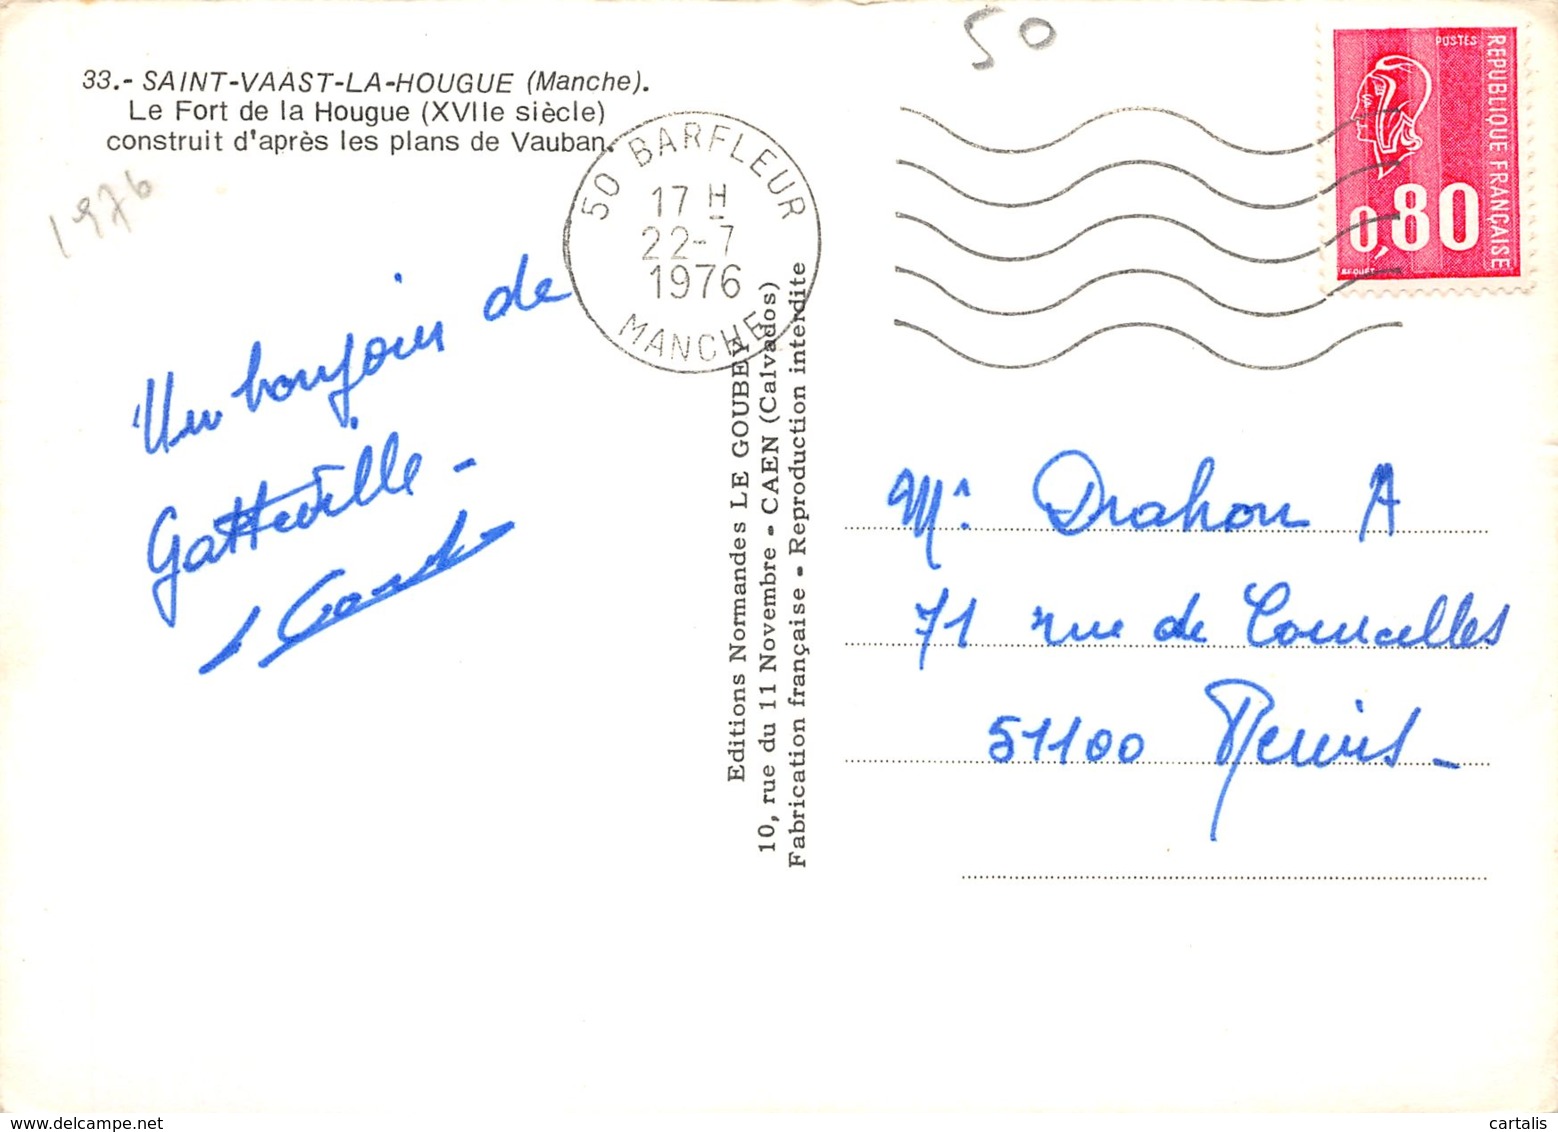 33.- SAINT-VAAST-LA-HOUGUE (Manche).
Le Fort de la Hougue (XVIIe siècle)
construit d'après les plans de Vauban.
1976
50
50 BARFLEUR
17 H
22-7
1976
MANCHE
POSTES
REPUBLIQUE FRANÇAISE
0,80
Un bonjour de
Gatteville -
Editions Normandes LE GOUBEY
10, rue du 11 Novembre - CAEN (Calvados)
Fabrication française - Reproduction interdite
Mr Drahon A
71 rue de Courcelles
51100 Reims -
delcampe.net
cartalis